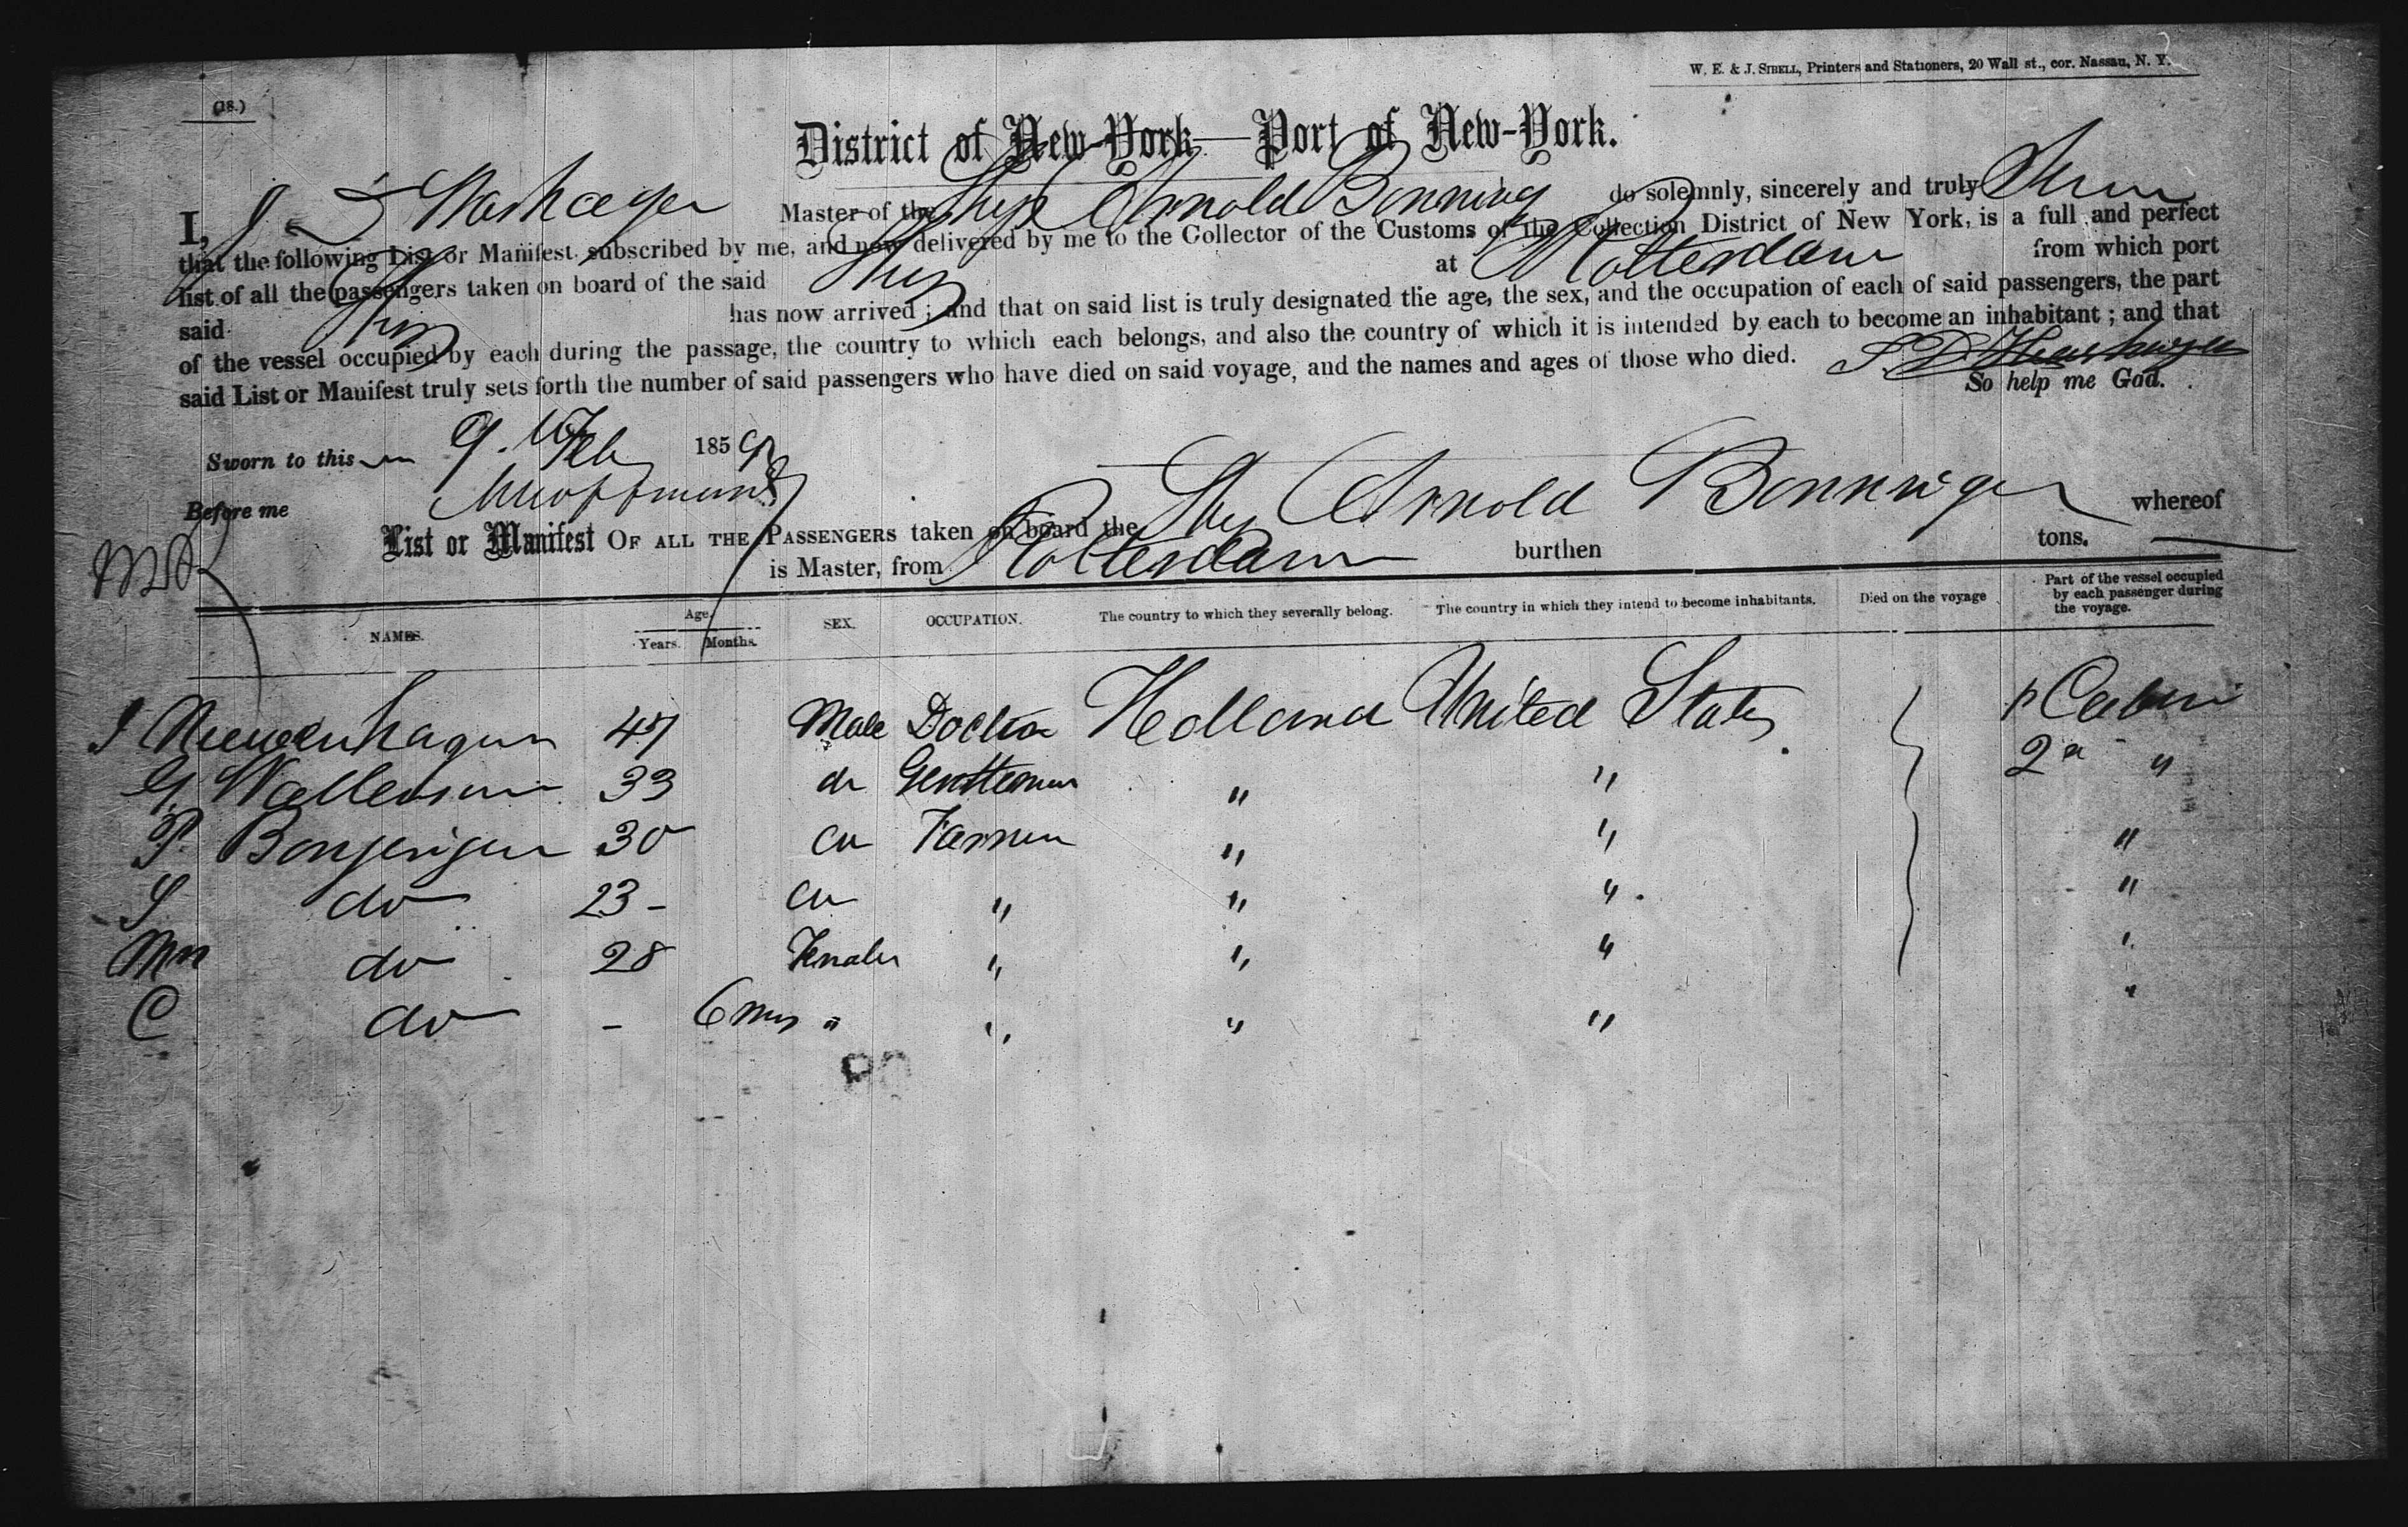 W. E. & J. SIBELL, Printers and Stationers, 20 Wall st., cor. Nassau, N. Y.
(18.)
District of New-York—Port of New-York.
I, J Master of the Ship Arnold Bonning do solemnly, sincerely and truly
that the following List or Manifest subscribed by me, and now delivered by me to the Collector of the Customs of the Collection District of New York, is a full and perfect
list of all the passengers taken on board of the said Ship at Rotterdam from which port
said Ship has now arrived; and that on said list is truly designated the age, the sex, and the occupation of each of said passengers, the part
of the vessel occupied by each during the passage, the country to which each belongs, and also the country of which it is intended by each to become an inhabitant; and that
said List or Manifest truly sets forth the number of said passengers who have died on said voyage, and the names and ages of those who died.
So help me God.
Sworn to this 9. Feb 1859
Before me
List or Manifest OF ALL THE PASSENGERS taken on board the Ship Arnold Bonninger whereof
is Master, from Rotterdam burthen tons.
NAMES. Age. Years. Months. SEX. OCCUPATION. The country to which they severally belong. The country in which they intend to become inhabitants. Died on the voyage Part of the vessel occupied by each passenger during the voyage.
J 47 Male Doctor Holland United States Cabin
G. 33 do Gentleman " " 2d "
P. 30 do Farmer " " "
S do 23 - do " " " "
do 28 Female " " " "
C do - 6 mos " " " " "